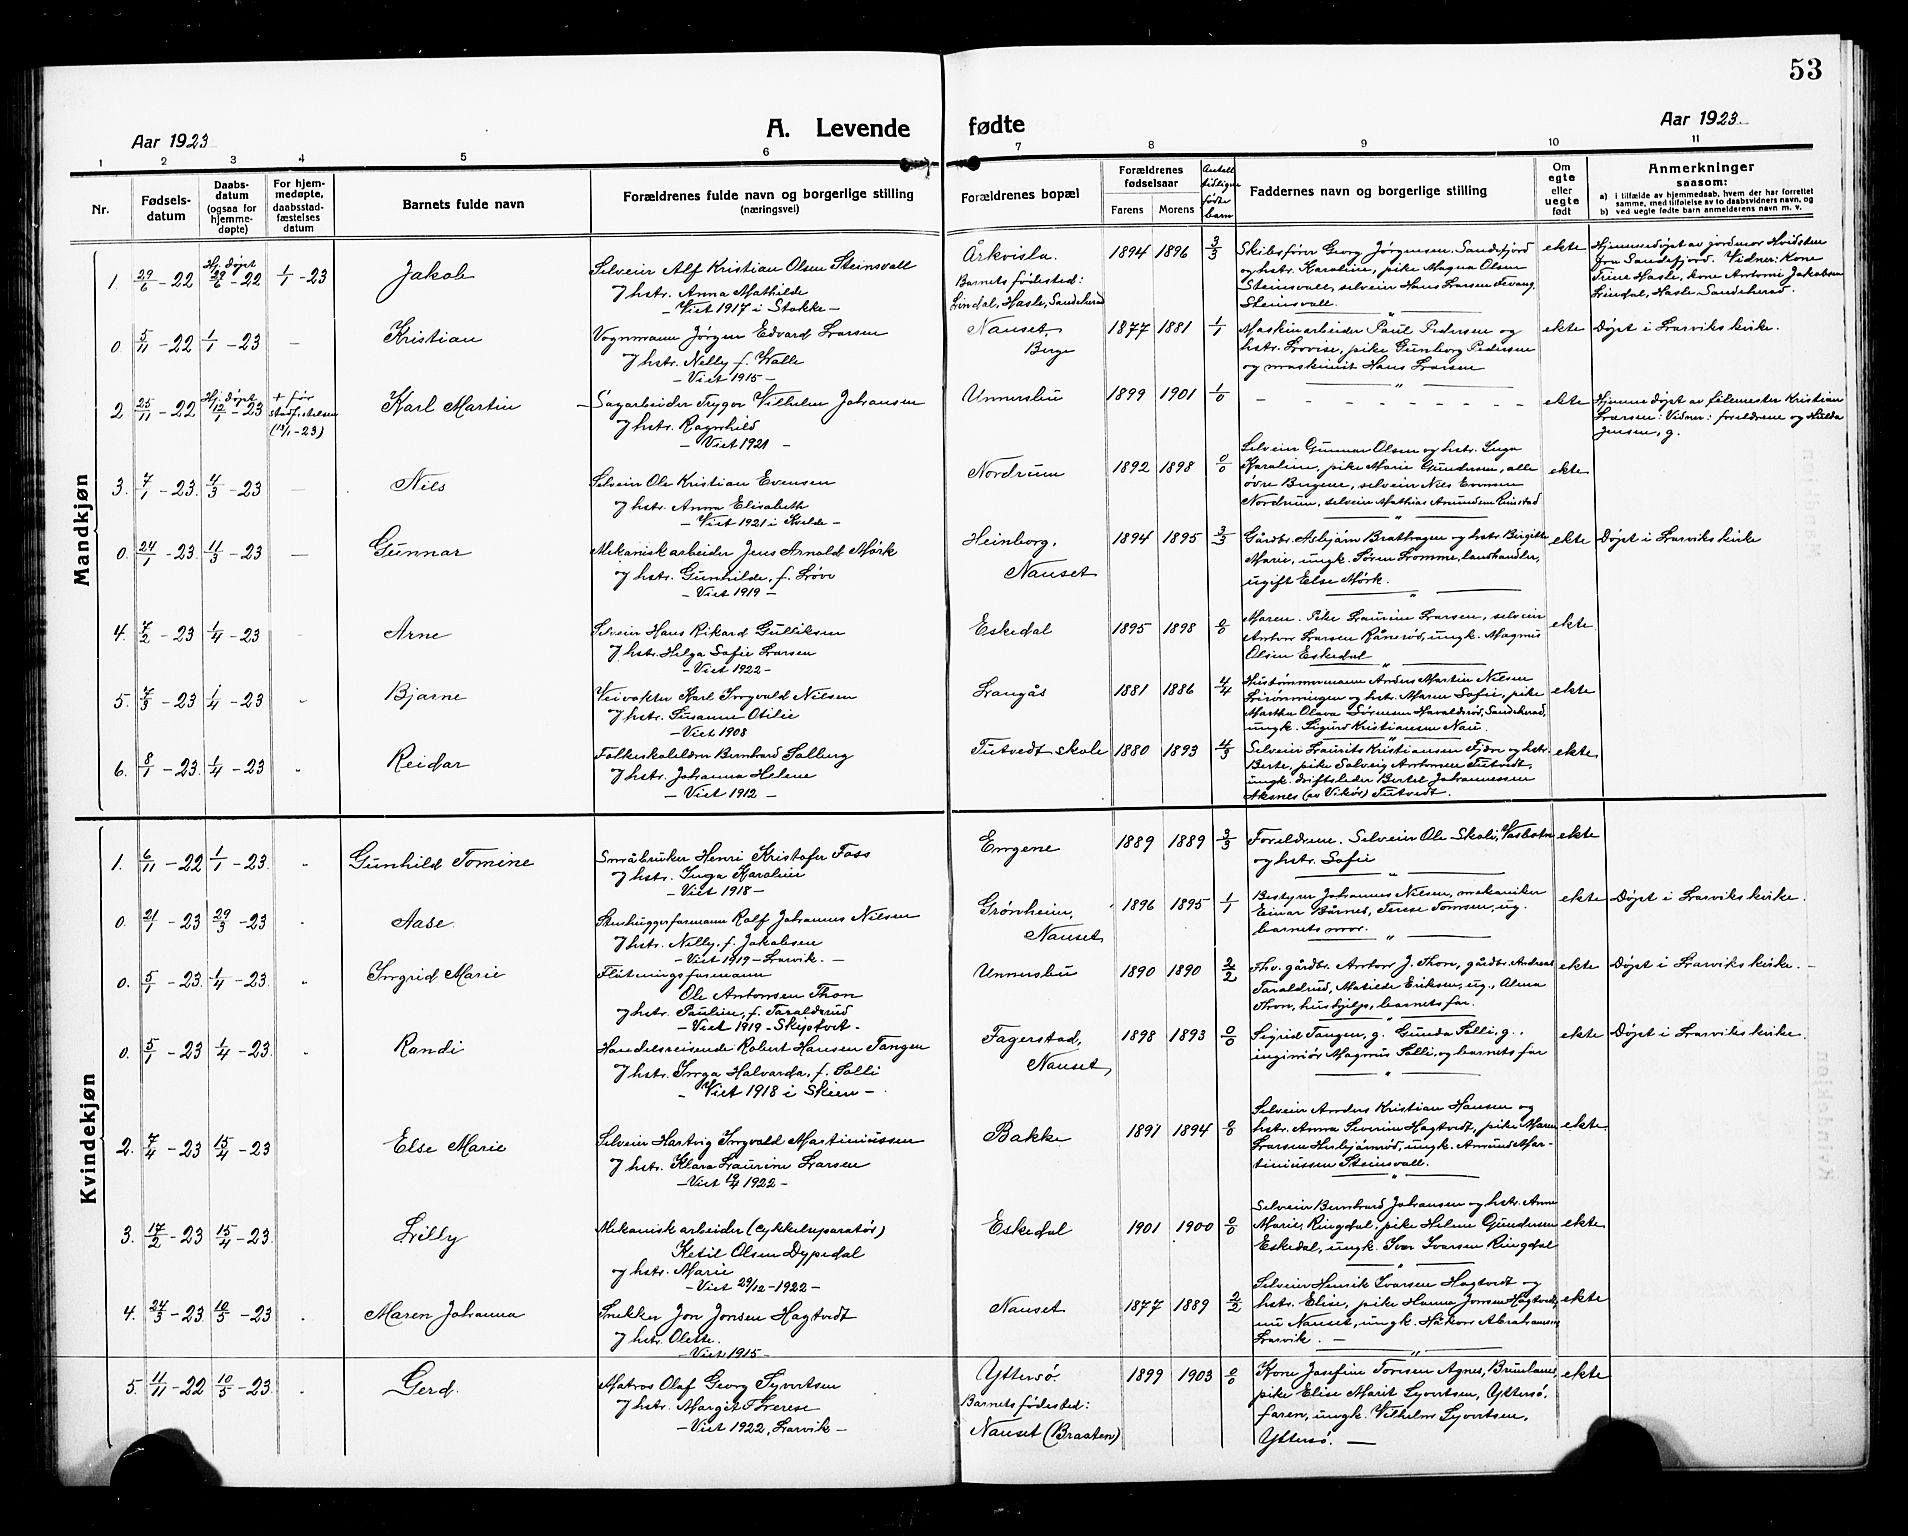 53
Aar 1923
A. Levende
fødte
Aar 1923
1 2 3 4 5 6 7 8 9 10 11
Nr.
Fødsels-
datum
Daabs-
datum
(ogsaa for
hjemme-
døpte)
For hjem-
medøpte,
daabsstad-
fæstelses
datum
Barnets fulde navn
Forældrenes fulde navn og borgerlige stilling
(næringsvei)
Forældrenes bopæl
Forældrenes
fødselsaar
Farens Morens
Antall
tidligere
fødte
barn
Faddernes navn og borgerlige stilling
Om
egte
eller
uegte
født
Anmerkninger
saasom:
a) i tilfælde av hjemmedaab, hvem der har forrettet
samme, med tilføielse av to daabsvidners navn, og
b) ved uegte fødte barn anmelderens navn m. v.
Mandkjøn
1. 29/6-22 Hj. døpt 29/6-22 1/1-23 Jakob
Selveier Alf Kristian Olsen Steinsvall
og hstr. Anna Mathilde
- Viet 1917 i Stokke -
Årkvisla.
Barnets fødested:
Lindal, Hasle, Sandeherad
1894 1896 3/3
Skibsfører Georg Jørgensen, Sandefjord
og hstr. Karoline, pike Magna Olsen
Steinsvall, selveier Hans Larsen Levang
Steinsvall.
ekte
Hjemmedøpt av jordmor Hvidsten
fra Sandefjord. Vidner: Kone
Trine Hasle, kone Antomi Jakobsen
Lindal, Hasle, Sandeherad.
0. 5/11-22 1/1-23 - Kristian
Vognmann Jørgen Edvard Larsen
og hstr. Nelly f. Walle
- Viet 1915 -
Nanset,
Berge
1877 1881 1/1
Maskinarbeider Paul Pedersen og
hstr. Lovise, pike Gunborg Pedersen
og maskinist Hans Larsen
ekte
Døpt i Larviks kirke.
2 25/11-22 Hj. døpt 12/1-23 + før
stadfestelsen
(13/1-23)
Karl Martin
Sagarbeider Trygve Vilhelm Johansen
og hstr. Ragnhild
- Viet 1921
Unnersbu
1899 1901 1/0
- - - - - - - -
ekte
Hjemmedøpt av filemester Kristian
Larsen: Vidner: foreldrene og Hilda
Jensen, g.
3. 7/1-23 4/3-23 - Nils
Selveier Ole Kristian Evensen
og hstr. Anna Elisabeth
- Viet 1921 i Kvelde -
Nordrum
1892 1898 0/0
Selveier Gunnar Olsen og hstr. Inga
Karoline, pike Marie Gundersen, alle
øvre Bergene, selveier Nils Evensen
Nordrum, selveier Mathias Amundsen Rimstad
ekte
0. 24/1-23 11/3-23 - Gunnar
Mekanisk arbeider Jens Arnold Mørk
og hstr. Gunhilde, f. Løve
- Viet 1919 -
Heinborg,
Nanset
1894 1895 3/3
Gårdbr. Asbjørn Brathagen og hstr. Birgitte
Marie, ungk. Søren Lomme, landhandler,
ugift Else Mørk.
ekte
Døpt i Larviks kirke
4. 7/2-23 1/4-23 Arne
Selveier Hans Rikard Gulliksen
og hstr. Helga Sofie Larsen
- Viet 1922 -
Eskedal
1895 1898 0/0
Moren. Pike Laurine Larsen, selveier
Anton Larsen Rånerød, ungk. Magnus
Olsen Eskedal
ekte
5. 7/3-23 1/4-23 Bjarne
Veivokter Karl Ingvald Nilsen
og hstr. Susanne Otilie
- Viet 1908
Langås
1881 1886 4/4
Hustømmermann Anders Martin Nilsen
og hstr. Maren Sofie, pike
Martha Olava Sørensen Haraldsrød, Sandeherad,
ungk. Sigurd Kristiansen Nau.
ekte
6. 8/1-23 1/4-23 Reidar
Folkeskolelærer Bernhard Solberg
og hstr. Johanna Helene
- Viet 1912 -
Tutvedt skole
1880 1893 4/3
Selveier Laurits Kristiansen Fjære og hstr.
Berte, pike Solveig Antonsen Tutvedt,
ungk. driftsleder Bertel Johannessen
Aksnes (av Vikør) Tutvedt.
ekte
Kvindekjøn
1. 6/11-22 1/1-23 Gunhild Tomine
Småbruker Henri Kristofer Foss
og hstr. Inga Karoline
- Viet 1918 -
Emgene
1889 1889 3/3
Foreldrene. Selveier Ole Skoli, Vasbotn
og hstr. Sofie
ekte
0. 21/1-23 29/3-23 Aase.
Stenhuggerformann Rolf Johannes Nilsen
og hstr. Nelly, f. Jakobsen
- Viet 1919 - Larvik. -
Grønheim,
Nanset
1896 1895 1/1
Bestyrer Johannes Nilsen, mekaniker
Einar Bårnes, Terese Tomsen, ug.
barnets mor.
ekte
Døpt i Larviks kirke.
0. 5/1-23 1/4-23 Ingrid Marie
Fløtningsformann
Ole Antonsen Thon
og hstr. Pauline, f. Taraldsrud
- Viet 1919 - Skiptvet -
Unnersbu
1890 1890 2/2
Fhv. gårdbr. Anton J. Thon, gårdbr. Andreas
Taraldrud, Matilde Eriksen, ug., Alma
Thon, hushjelp, barnets far.
ekte
Døpt i Larviks kirke. -
0. 5/1-23 1/4-23 Randi
Handelsreisende Robert Hansen Tangen
og hstr. Inga Halvarda, f. Solli
- Viet 1918 i Skien -
Fagerstad,
Nanset
1898 1893 0/0
Sigrid Tangen, g. Gunda Solli, g.,
ingeniør Magnus Solli, og barnets far
ekte
Døpt i Larviks kirke.
2. 7/4-23 15/4-23 Else Marie
Selveier Hartvig Ingvald Martiniussen
og hstr. Klara Laurine Larsen
Bakke
1891 1894 0/0
Selveier Anders Kristian Hansen og
hstr. Anna Severine Hagtvedt, pike Maren
Larsen Hesbjørnrød, ungk. Amund Mar-
tiniussen Steinsvall.
ekte
3. 17/2-23 15/4-23 Lilly
Mekanisk arbeider (cykkelreparatør)
Ketil Olsen Dypedal
og hstr. Marie
- Viet 29/12-1922 -
Eskedal
1901 1900 0/0
Selveier Bernhard Johansen og hstr. Anne
Marie, Ringdal, pike Helene Gundersen
Eskedal, ungk. Ivar Ivarsen Ringdal
ekte
4. 24/3-23 10/5-23 Maren Johanna
Snekker Jon Jonsen Hagtvedt
og hstr. Olette.
- Viet 1915 -
Nanset
1877 1889 2/2
Selveier Henrik Ivarsen Hagtvedt og
hstr. Elise, pike Hanna Jonsen Hagtvedt,
nu Nanset, ungk. Håkon Abrahamsen
Larvik. -
ekte
5. 11/11-22 10/5-23 Gerd.
Matros Olaf Georg Syvertsen
og hstr. Margit Therese
- Viet 1922, Larvik -
Yttersø.
Barnets fødested:
Nanset (Braaten)
1899 1903 0/0
Kone Josefine Torsen Agnes, Brunlanes,
pike Elise Marit Syvertsen, Yttersø,
faren, ungk. Vilhelm Syvertsen,
Yttersø. -
ekte